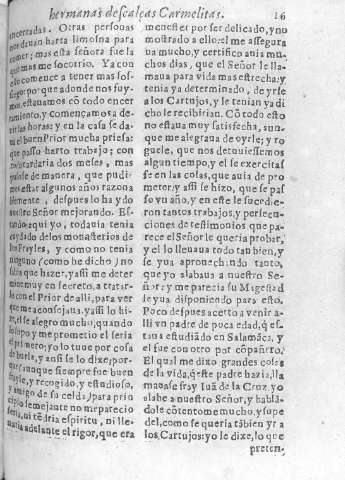 hermanas descalças Carmelitas. 16
encerradas. Otras personas
nos dauan harta limosna para
comer; mas esta señora fue la
que mas me socorrio. Ya con
ello comence a tener mas sos-
siego: por que adonde nos fuy-
mos, estauamos cō todo encer
ramiento, y començamos a de-
zir las horas: y en la casa se da-
ua el buen Prior mucha priesa:
que passo harto trabajo; con
todo tardaria dos meses, mas
pusose de manera, que pudi-
mos estar algunos años razona
blemente, despues lo ha ydo
nuestro Señor mejorando. Es-
tando aqui yo, todauia tenia
cuydado de los monasterios de
los Frayles, y como no tenia
ninguno (como he dicho) no
sabia que hazer, y assi me deter
mine muy en secreto, a tratar-
lo con el Prior de alli, para ver
que me aconsejaua, y assi lo hi-
ze, el se alegro mucho, quando
lo supo y me prometio el seria
el primero; yo lo tuue por cosa
de burla, y ansi se lo dixe; por-
que, aunque siempre fue buen
frayle, y recogido, y estudioso,
y amigo de su celda, para prin
cipio semejante no me parecio
seria, ni tēdria espiritu, ni lle-
uaria adelante el rigor, que era
menester por ser delicado, y no
mostrado a ello; el me assegura
ua mucho, y certifico auia mu-
chos dias, que el Señor le lla-
maua para vida mas estrecha; y
tenia ya determinado, de yrse
a los Cartujos, y le tenian ya di
cho le recibirian. Cō todo esto
no estaua muy satisfecha, aun-
que me alegraua de oyrle; y ro
guele, que nos detuuiessemos
algun tiempo, y el se exercitas
se en las cosas, que auia de pro
meter, y assi se hizo, que se pas
so vn año, y en este le sucedie-
ron tantos trabajos, y persecu-
ciones de testimonios que pa-
rece el Señor le queria probar,
y el lo lleuaua todo tan bien, y
se yua aprouechando tanto,
que yo alabaua a nuestro Se-
ñor; y me parecia su Magestad
le yua disponiendo para esto.
Poco despues acerto a venir a-
lli vn padre de poca edad, q̃ es-
taua estudiando en Salamāca, y
el fue con otro por cōpañero.
El qual me dixo grandes cosas
de la vida, q̃ este padre hazia, lla
mauase fray Iuā de la Cruz, yo
alabe a nuestro Señor, y hablā-
dole cōtentome mucho, y supe
del, como se queria tābien yr a
los, Cartujos: yo le dixe, lo que
preten-